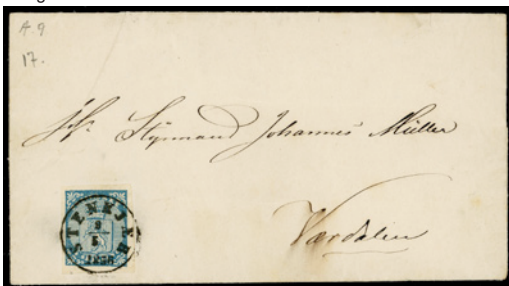 A.9
17.
Styrmand Johannes Müller
Værdalen
STENKJÆR
9
5